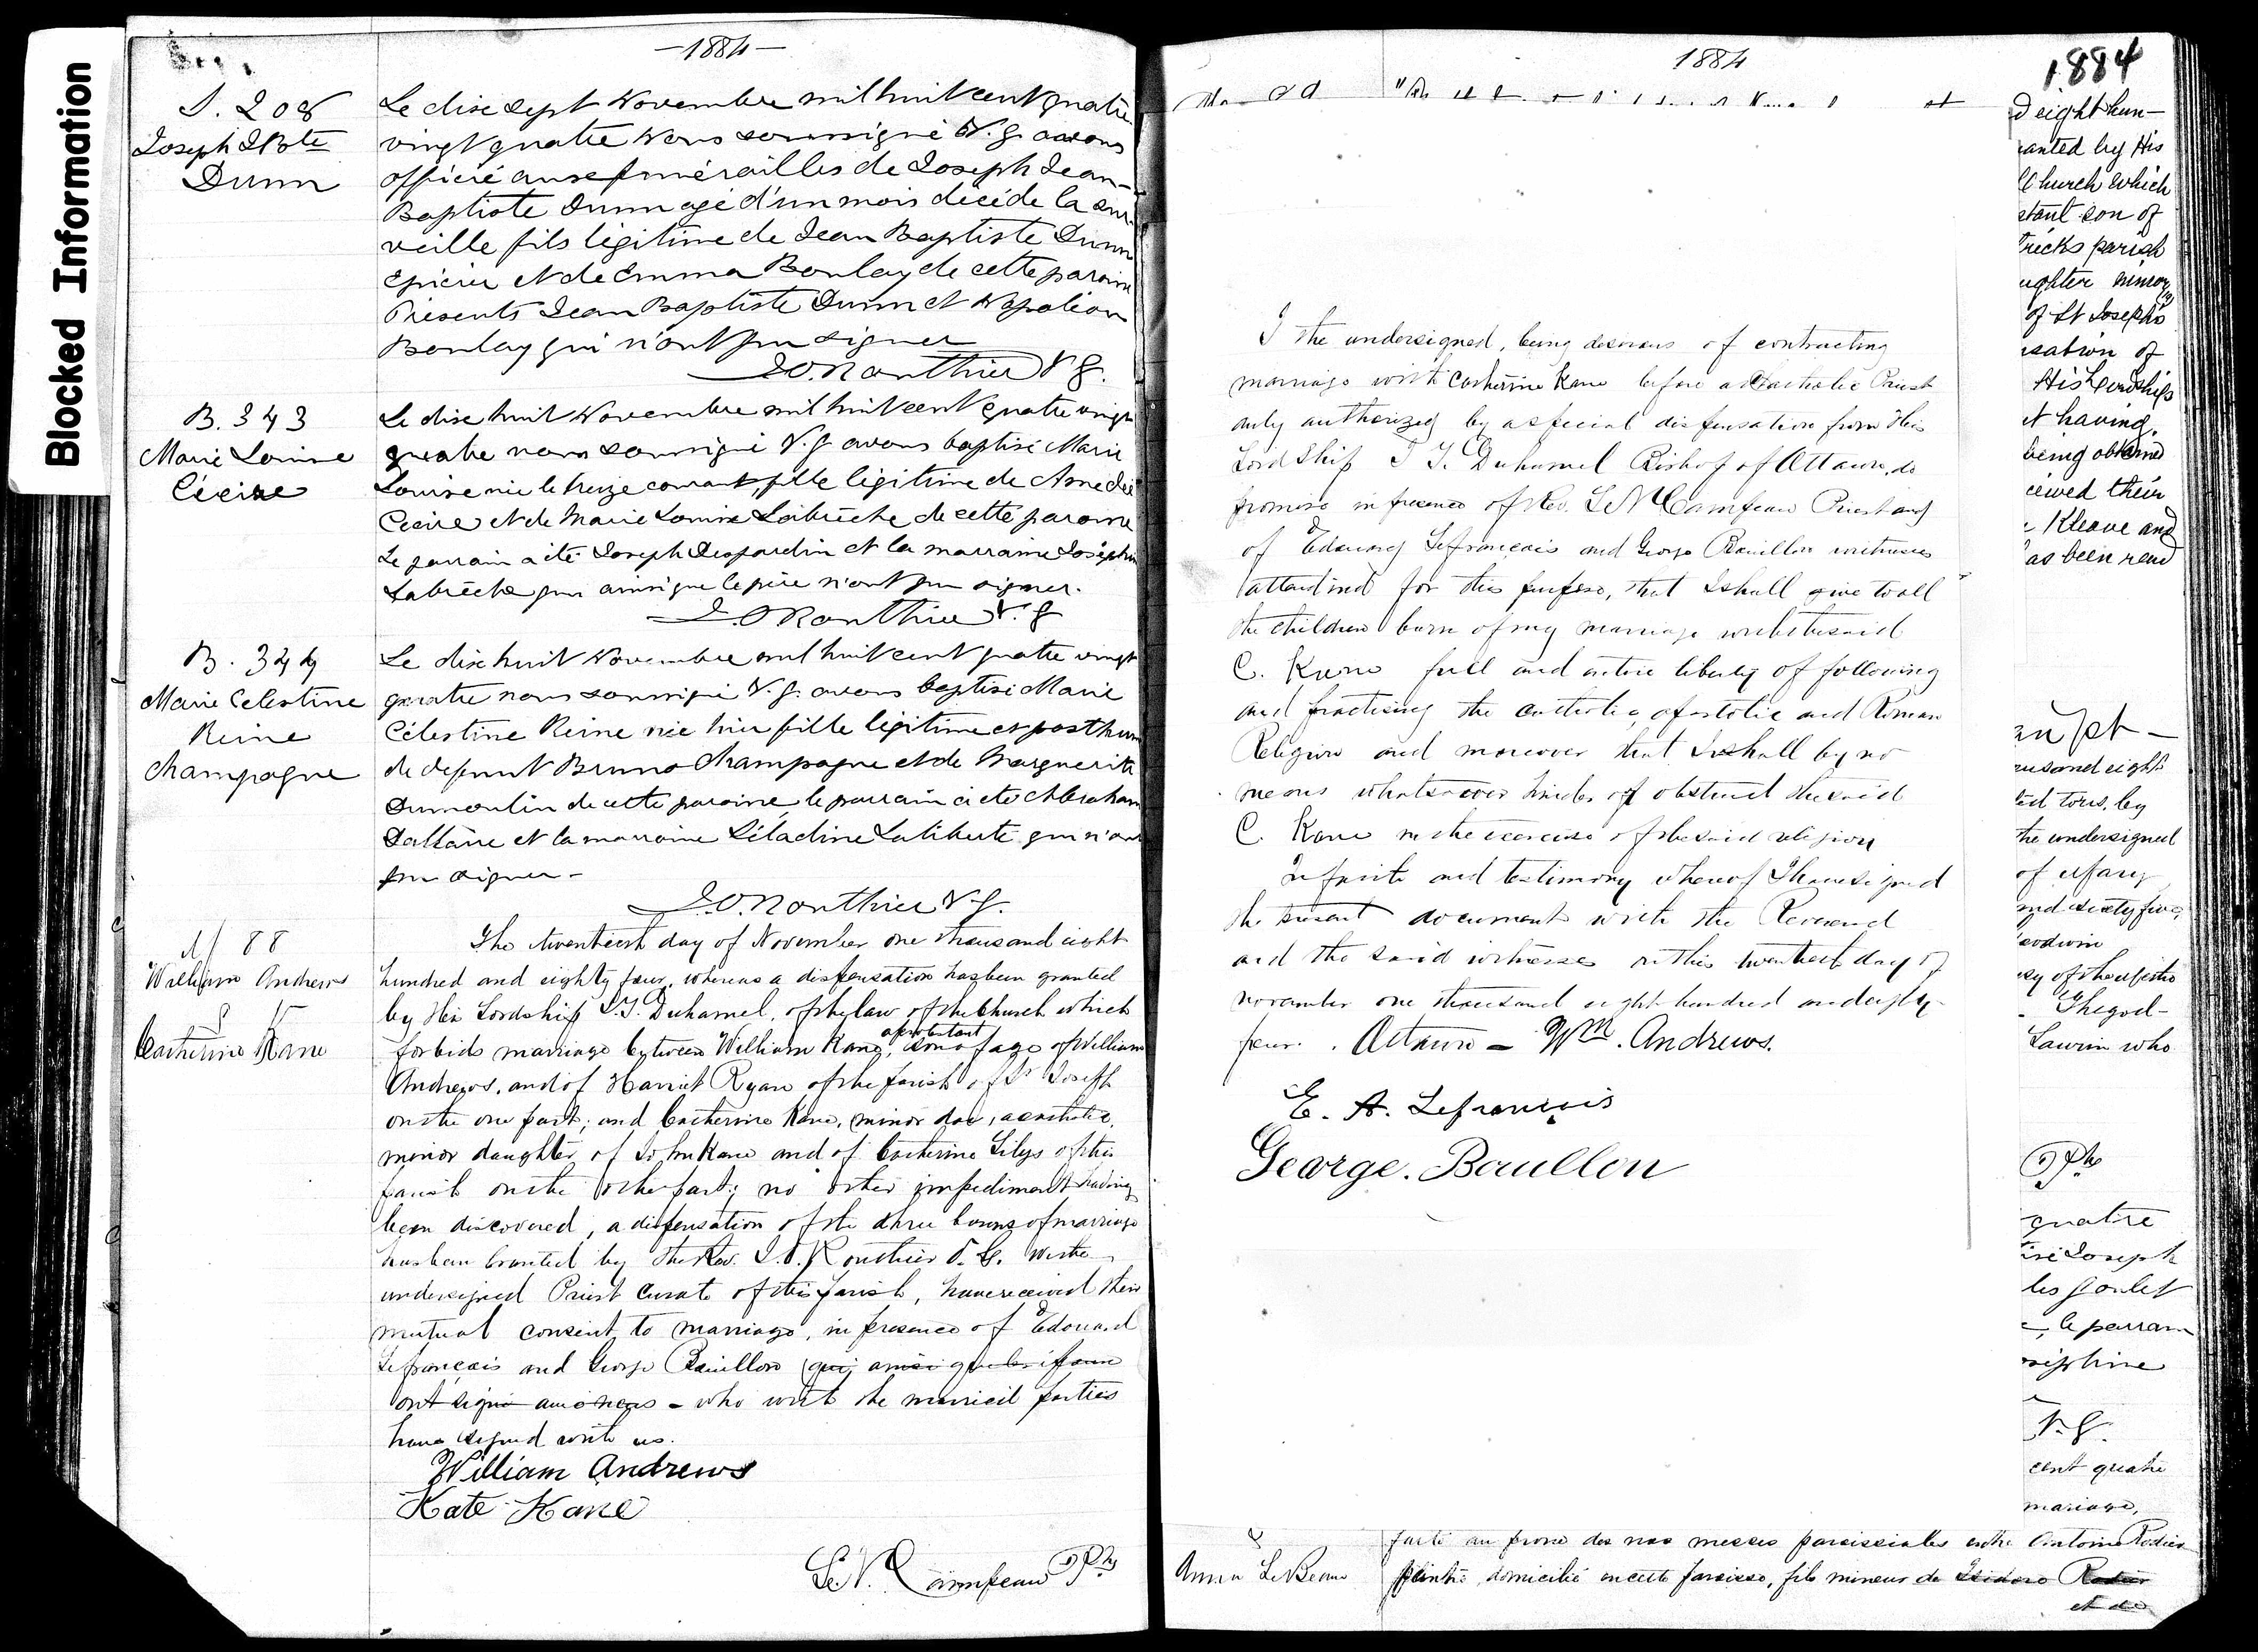 Blocked Information
-1884-
S. 208
Joseph J Bte
Dunn
Le dix sept Novembre mil huit cent quatre
vingt quatre Nous soussigné V. g. avons
officié aux funérailles de Joseph Jean-
Baptiste Dunn agé d'un mois décédé la sur
veille fils légitime de Jean Baptiste Dunn
Epicier et de Emma Boulay de cette paroisse
Présents Jean Baptiste Dunn et Napoléon
Boulay qui n'ont pu signer
J.O. Routhier V g.
B. 343
Marie Louise
Le dix huit Novembre mil huit cent quatre vingt
quatre nous soussigné V. g. avons baptisé Marie
Louise née le treize courant, fille légitime de Amedée
et de Marie Louise Labrèche de cette paroisse
Le parrain a été Joseph Desjardin et la marraine Joséphine
Labrèche qui ainsi que le père n'ont pu signer.
J.O Routhier V. g
B. 344
Marie Celestine
Reine
Champagne
Le dix huit Novembre mil huit cent quatre vingt
quatre nous soussigné V. g. avons baptisé Marie
Célestine Reine née hier fille légitime et posthume
de defunt Bruno Champagne et de Marguerite
Dumoulin de cette paroisse, le parrain a été Abraham
Dallaire et la marraine Laliberté qui n'ont
pu signer-
J.O. Routhier V. g.
M 88
William Andrews
&
Catherine Kane
The twentieth day of November one thousand eight
hundred and eighty four, whereas a dispensation has been granted
by His Lordship J.T. Duhamel, of the law of the Church which
forbids marriage between William Kane, a protestant son of age of William
Andrews, and of Harriet Ryan of the parish of St Joseph
on the one part; and Catherine Kane, minor dau, a catholic,
minor daughter of John Kane and of Catherine of this
parish on the other part; no other impediment having
been discovered, a dispensation of the three banns of marriage
has been granted by the Rev. J.O. Routhier V. G. We the
undersigned Priest curate of this parish, have received their
mutual consent to marriage, in presence of Edouard
Lefrançais and George Bouillon qui ainsi que les époux
ont signé avec nous - who with the married parties
have signed with us.
William Andrews
Kate Kane
L. N. Campeau Ptre
1884
I the undersigned, being desirous of contracting
marriage with Catherine Kane before a Catholic Priest
duly authorized by a special dispensation from His
Lord Ship J T. Duhamel Bishop of Ottawa, do
promise in presence of Rev. L N Campeau Priest and
of Edouard Lefrançais and George Bouillon witnesses
attained for this purpose, that I shall give to all
the children born of my marriage with the said
C. Kane full and entire liberty of following
and practising the catholic, apostolic and Roman
Religion and moreover that I shall by no
means whatsoever hinder or obstruct the said
C. Kane in the exercise of the said religion
In faith and testimony whereof I have signed
the present document with the Reverend
and the said witnesses on this twentieth day of
november one thousand eight hundred and eighty
four. Ottawa - Wm. Andrews.
E. A. Lefrançois
George. Bouillon
1884
d eight hun-
anted by His
Church which
stant son of
tricks parish
ughter minor
of St Joseph's
sation of
His Lordship's
t having
being obtained
ceived their
Kleave and
as been read
usand eight
ed to us, by
the undersigned
of Mary
and sixty five,
The god-
Lawin who
Ptre
quatre
isé Joseph
les Goulet
le parrain
V. g.
cent quatre
mariage,
&
Anna LeBeau
faite au prone de nos messes paroissiales entre Antoine Rodier
peintre, domicilié en cette paroisse, fils mineur de Isidore Rodier
et de